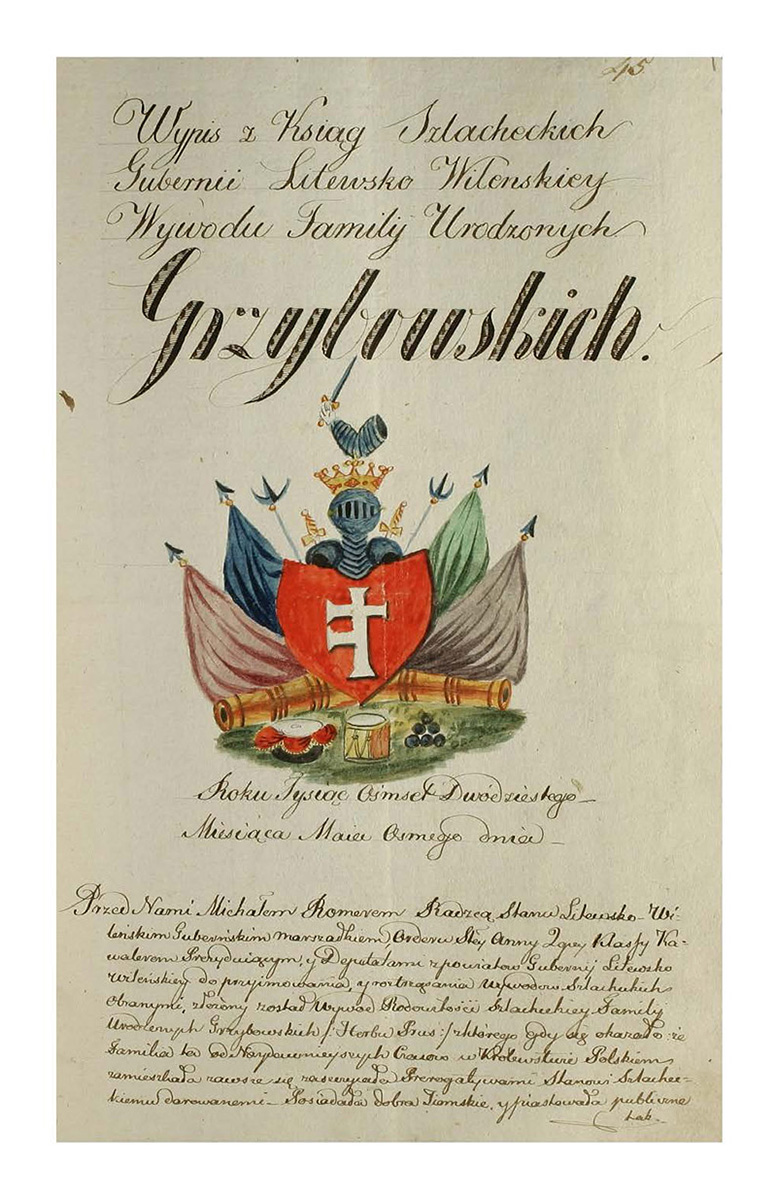 45
Wypis z Ksiąg Szlacheckich
Gubernii Litewsko Wilenskiey
Wywodu Familij Urodzonych
Grzybowskich.
Roku Tysiąc Osmset Dwódziestego
Miesiąca Maia Osmego dnia
Przed Nami Michałem Romerem Radzcą Stanu Litewsko-Wi-
leńskim Guberńskim marszałkiem, Orderu Stey Anny 2giey Klassy Ka-
walerem Prezyduiącym, y Deputatami z powiatow Gubernij Litewsko
Wileńskiey do przyimowania, y roztrząsania Wywodow Szlacheckich
Obranymi, złożony został Wywod Rodowitości Szlacheckiey Familij
Urodzonych Grzybowskich /: Herbu Prus :/ z którego gdy się okazało że
Familia ta od Naydawnieyszych Czasow w Królewstwie Polskiem
zamieszkała zawsze się zaszczycała Prerogatywami Stanowi Szlachec-
kiemu darowanemi - Posiadała dobra Ziemskie, y piastowała publiczne
tak